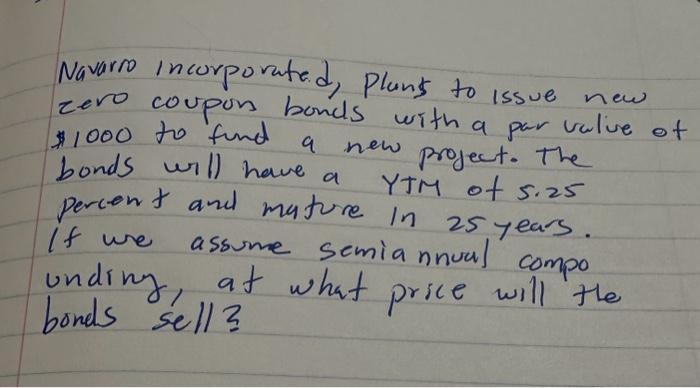 Navarro incorporated, plans to issue new
zero coupon bonds with a par value of
$1000 to fund a new project. The
bonds will have a YTM of 5.25
percent and mature in 25 years.
If we assume semiannual compo
unding, at what price will the
bonds sell?